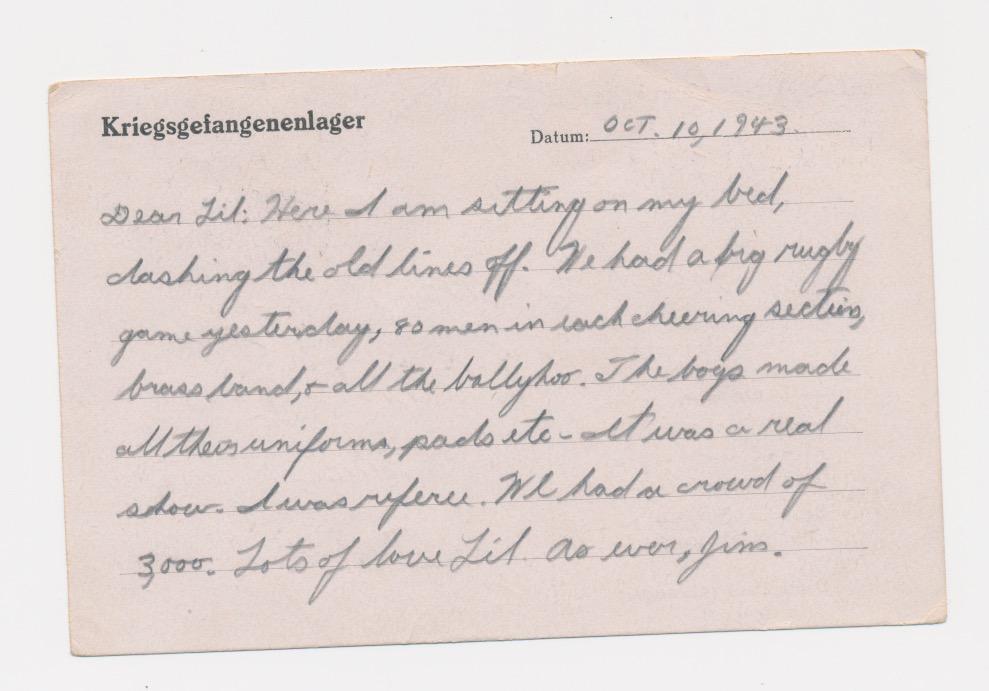 Kriegsgefangenenlager
Datum: OCT. 10, 1943.
Dear Lil: Here I am sitting on my bed,
dashing the old lines off. We had a big rugby
game yesterday, 80 men in each cheering section,
brass band, & all the ballyhoo. The boys made
all their uniforms, pads etc - It was a real
show. I was referee. We had a crowd of
3,000. Lots of love Lil As ever, Jim.